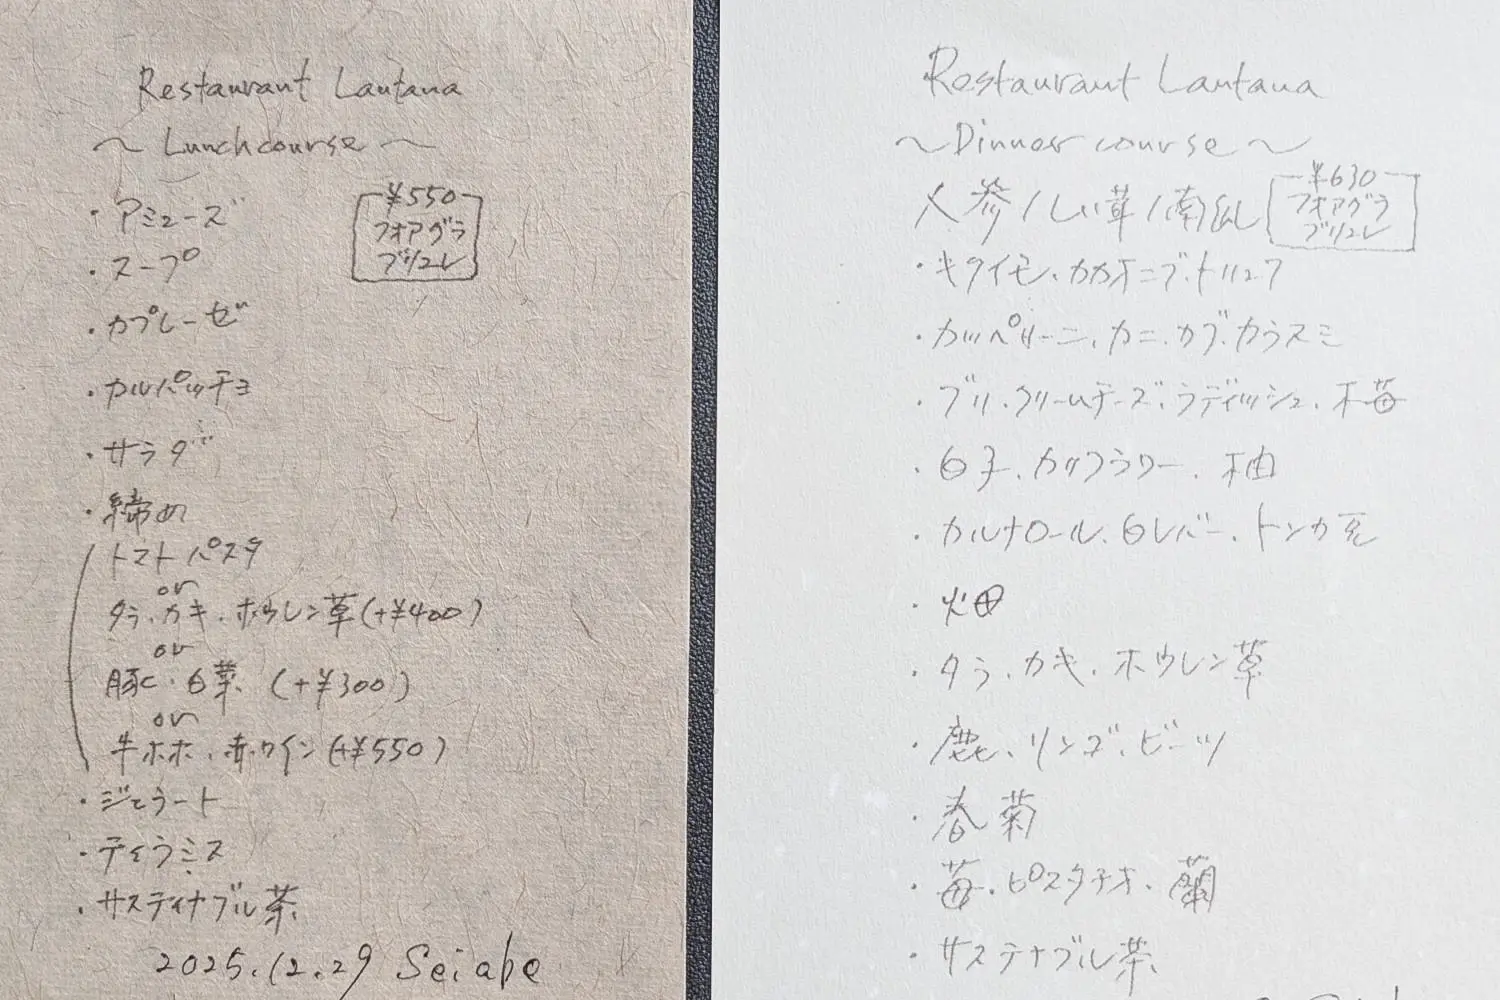 Restaurant Lantana
～Lunch course～
・アミューズ
¥550
フォアグラ
ブリュレ
・スープ
・カプレーゼ
・カルパッチョ
・サラダ
・締め
トマトパスタ
or
タラ、カキ、ホウレン草(+¥400)
or
豚、白菜 (+¥300)
or
牛ホホ、赤ワイン(+¥550)
・ジェラート
・ティラミス
・サスティナブル茶
2025.12.29 Seiabe
Restaurant Lantana
～Dinner course～
人参/しい茸/南瓜
¥630
フォアグラ
ブリュレ
・キクイモ、カカオニブ、トリュフ
・カッペリーニ、カニ、カブ、カラスミ
・ブリ、クリームチーズ、ラディッシュ、木苺
・白子、カリフラワー、柚
・カルナローリ、白レバー、トンカ豆
・畑
・タラ、カキ、ホウレン草
・鹿、リンゴ、ビーツ
・春菊
・苺、ピスタチオ、蘭
・サステナブル茶